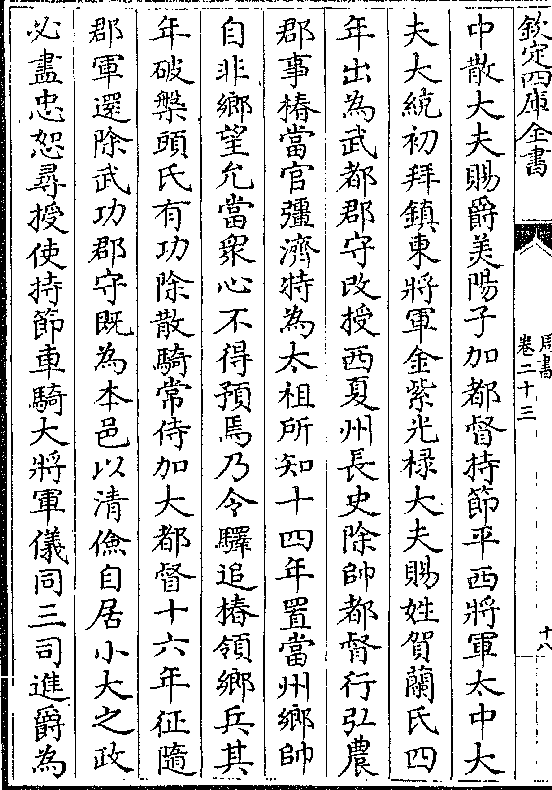 欽定四庫全書
周書
卷二十三
十八
中散大夫賜爵美陽子加都督持節平西將軍太中大
夫大統初拜鎮東將軍金紫光祿大夫賜姓賀蘭氏四
年出為武都郡守改授西夏州長史除帥都督行弘農
郡事椿當官彊濟特為太祖所知十四年置當州鄉帥
自非鄉望允當衆心不得預焉乃令驛追椿領鄉兵其
年破槃頭氐有功除散騎常侍加大都督十六年征隨
郡軍還除武功郡守既為本邑以清儉自居小大之政
必盡忠恕尋授使持節車騎大將軍儀同三司進爵為